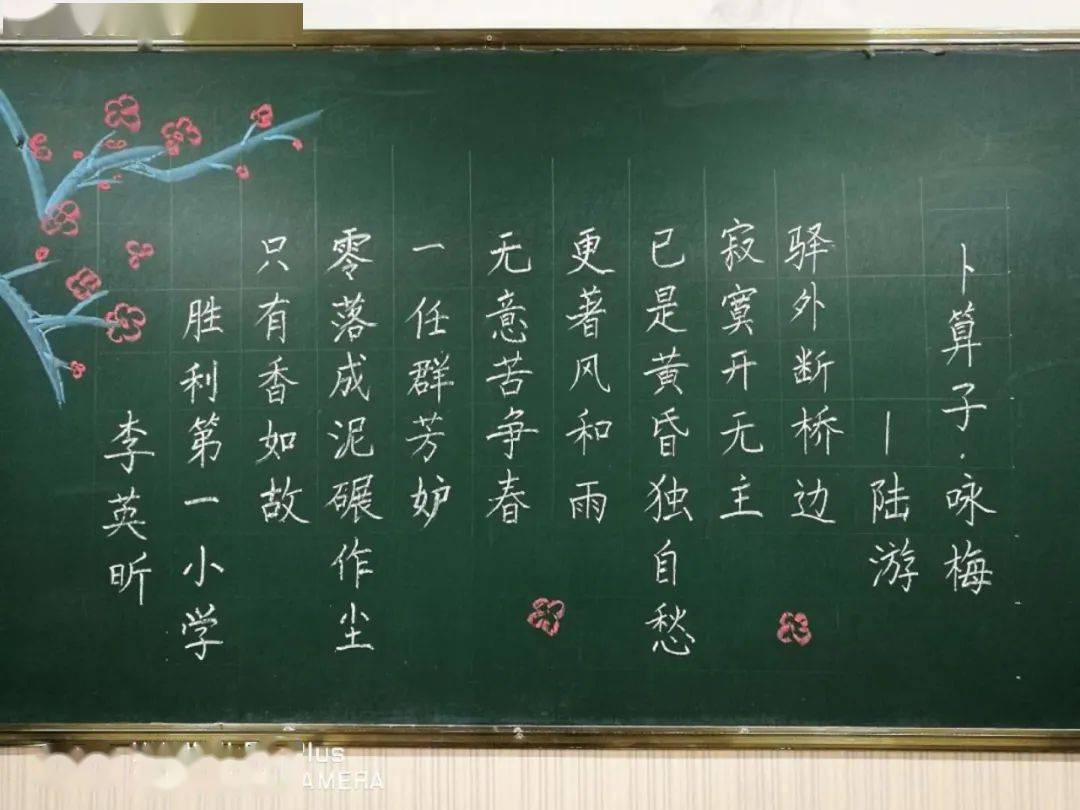 卜算子·咏梅
—陆游
驿外断桥边
寂寞开无主
已是黄昏独自愁
更著风和雨
无意苦争春
一任群芳妒
零落成泥碾作尘
只有香如故
胜利第一小学
李英昕
lus
AMERA